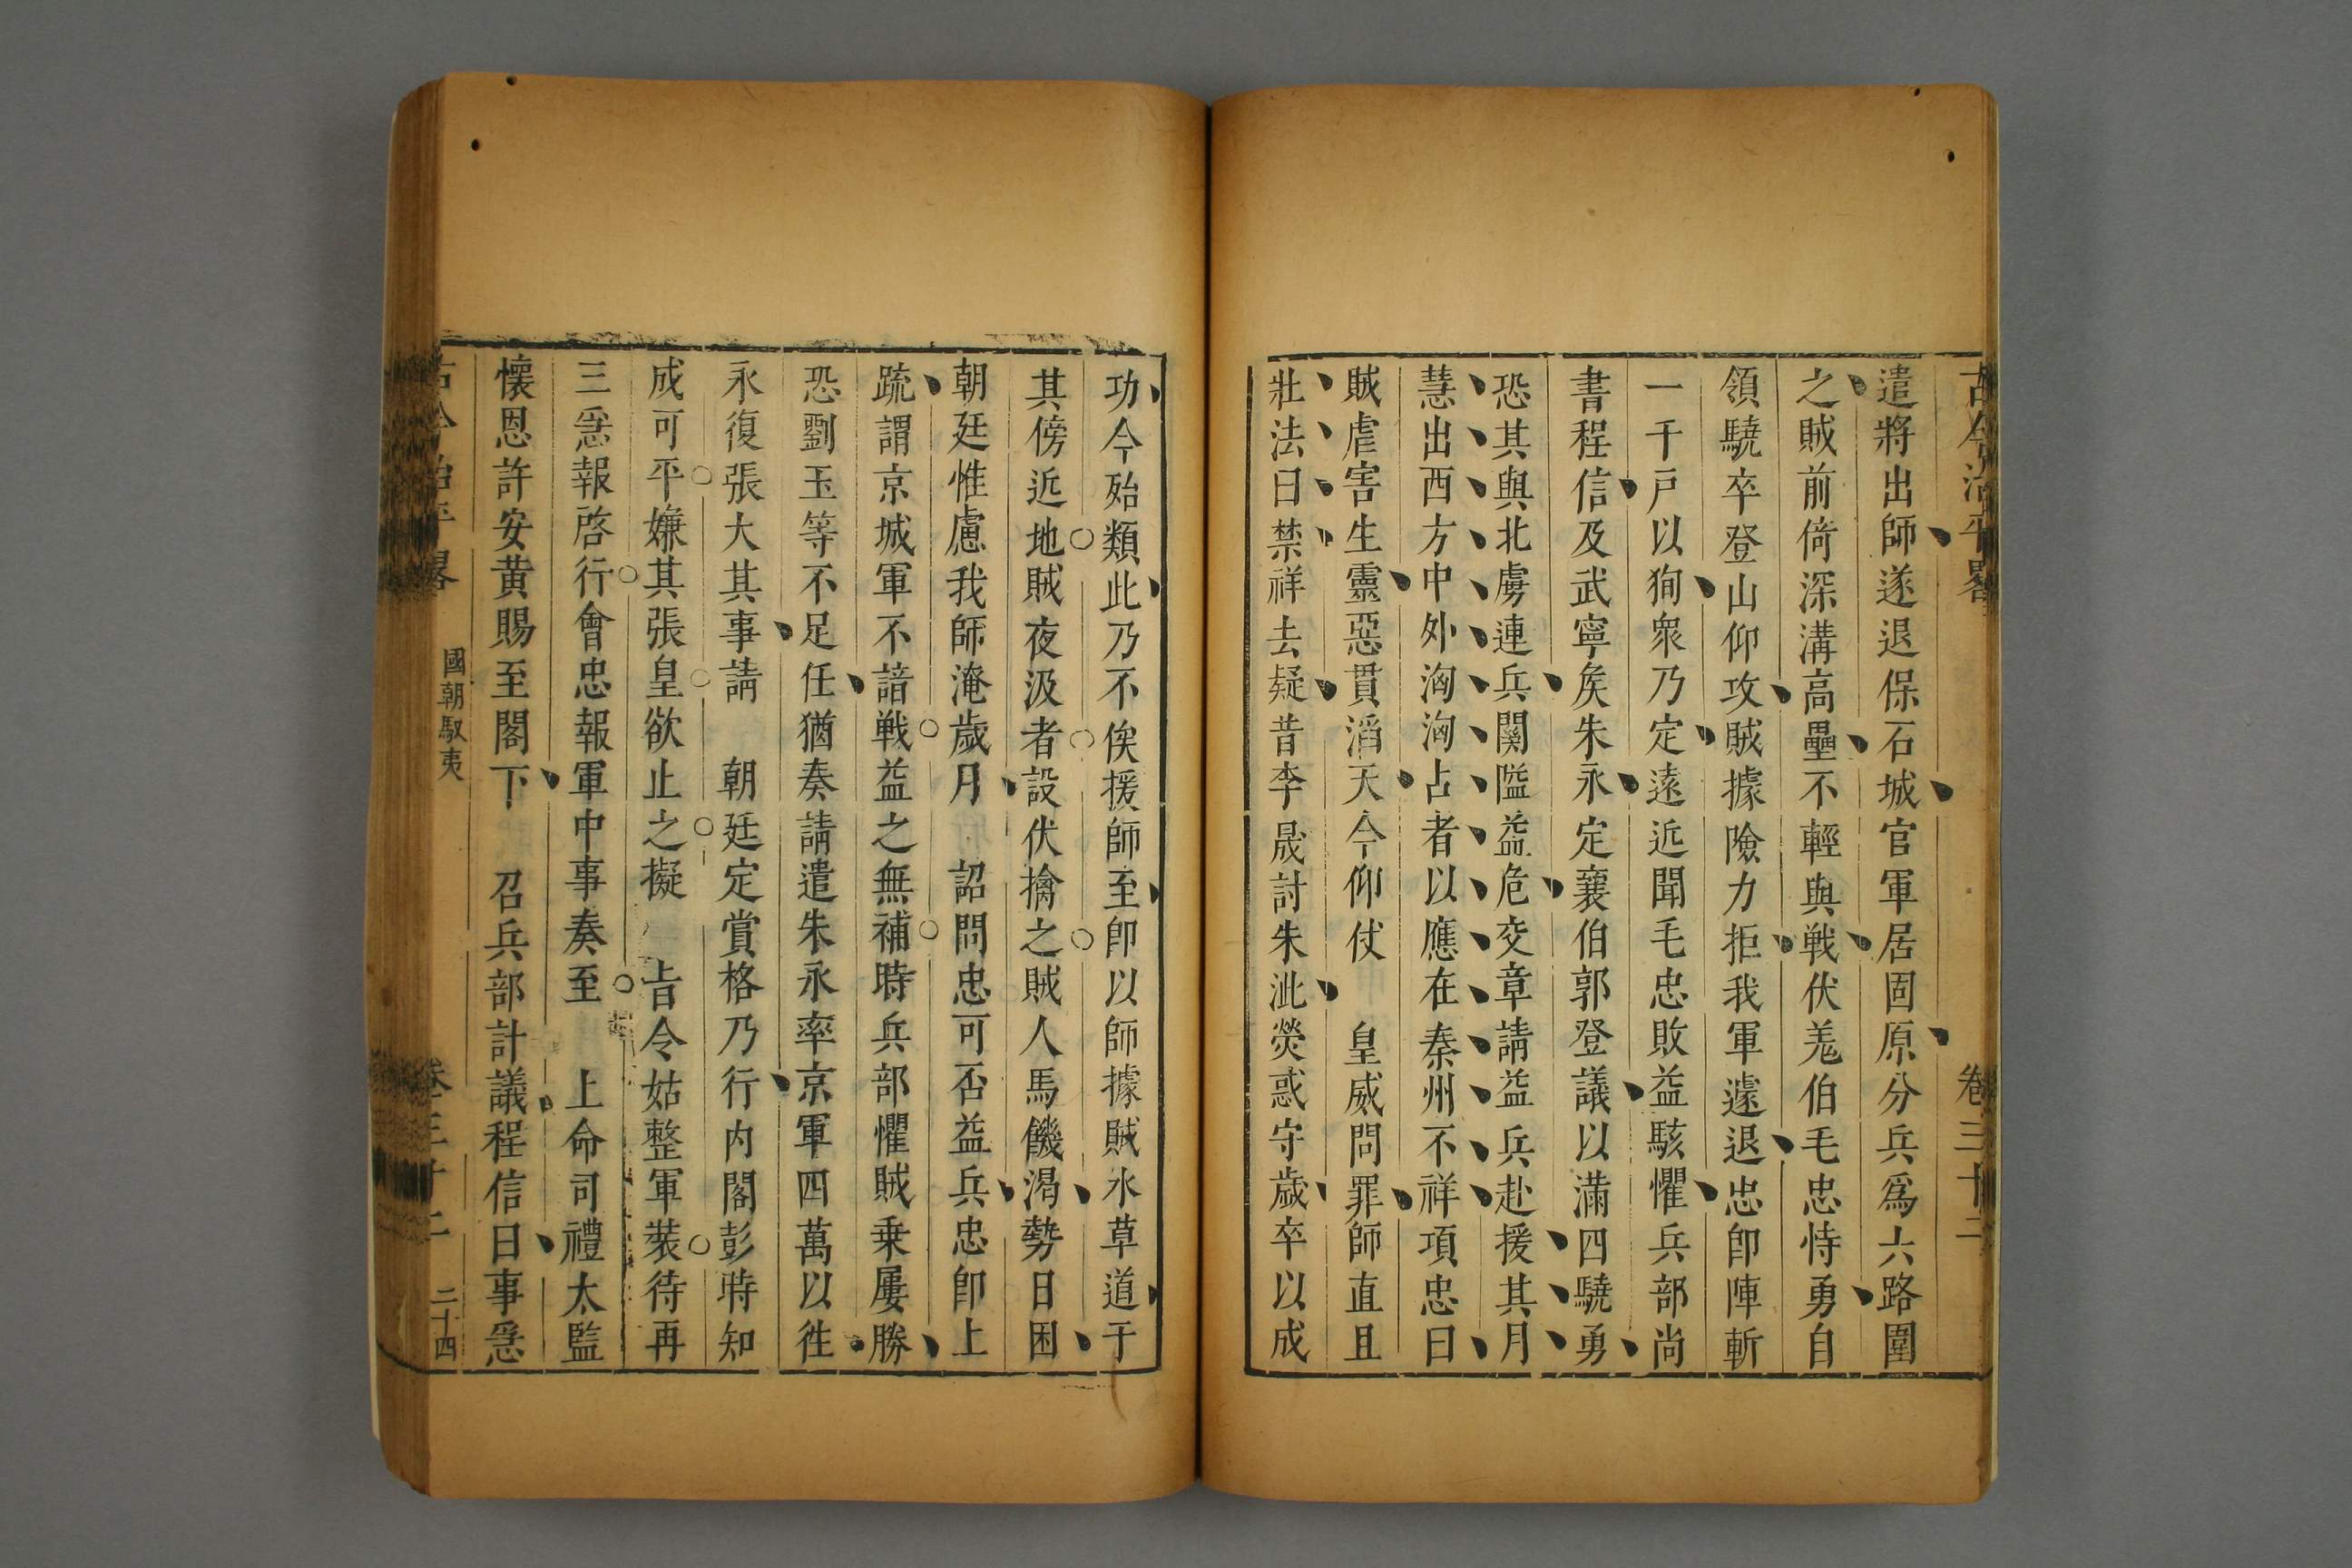 古今治平畧 卷三十二
遣將出師遂退保石城官軍居固原分兵爲六路圍
之賊前倚深溝高壘不輕與戰伏羗伯毛忠恃勇自
領驍卒登山仰攻賊據險力拒我軍遽退忠卽陣斬
一千戸以狥衆乃定遠近聞毛忠敗益駭懼兵部尚
書程信及武寧矦朱永定襄伯郭登議以滿四驍勇
恐其與北虜連兵關隘益危交章請益兵赴援其月
慧出西方中外洶洶占者以應在秦州不祥項忠曰
賊虐害生靈惡貫滔天今仰仗 皇威問罪師直且
壯法曰禁祥去疑昔李晟討朱泚熒惑守歲卒以成
功今殆類此乃不俟援師至卽以師據賊水草道于
其傍近地賊夜汲者設伏擒之賊人馬饑渴勢日困
朝廷惟慮我師淹歲月 詔問忠可否益兵忠卽上
疏謂京城軍不諳戰益之無補時兵部懼賊乗屢勝
恐劉玉等不足任猶奏請遣朱永率京軍四萬以徃
永復張大其事請 朝廷定賞格乃行内閣彭時知
成可平嫌其張皇欲止之擬 㫖令姑整軍裝待再
三㥯報啓行會忠報軍中事奏至 上命司禮太監
懷恩許安黄賜至閣下 召兵部計議程信曰事㥯
古今治平畧 國朝馭夷 卷三十二 二十四